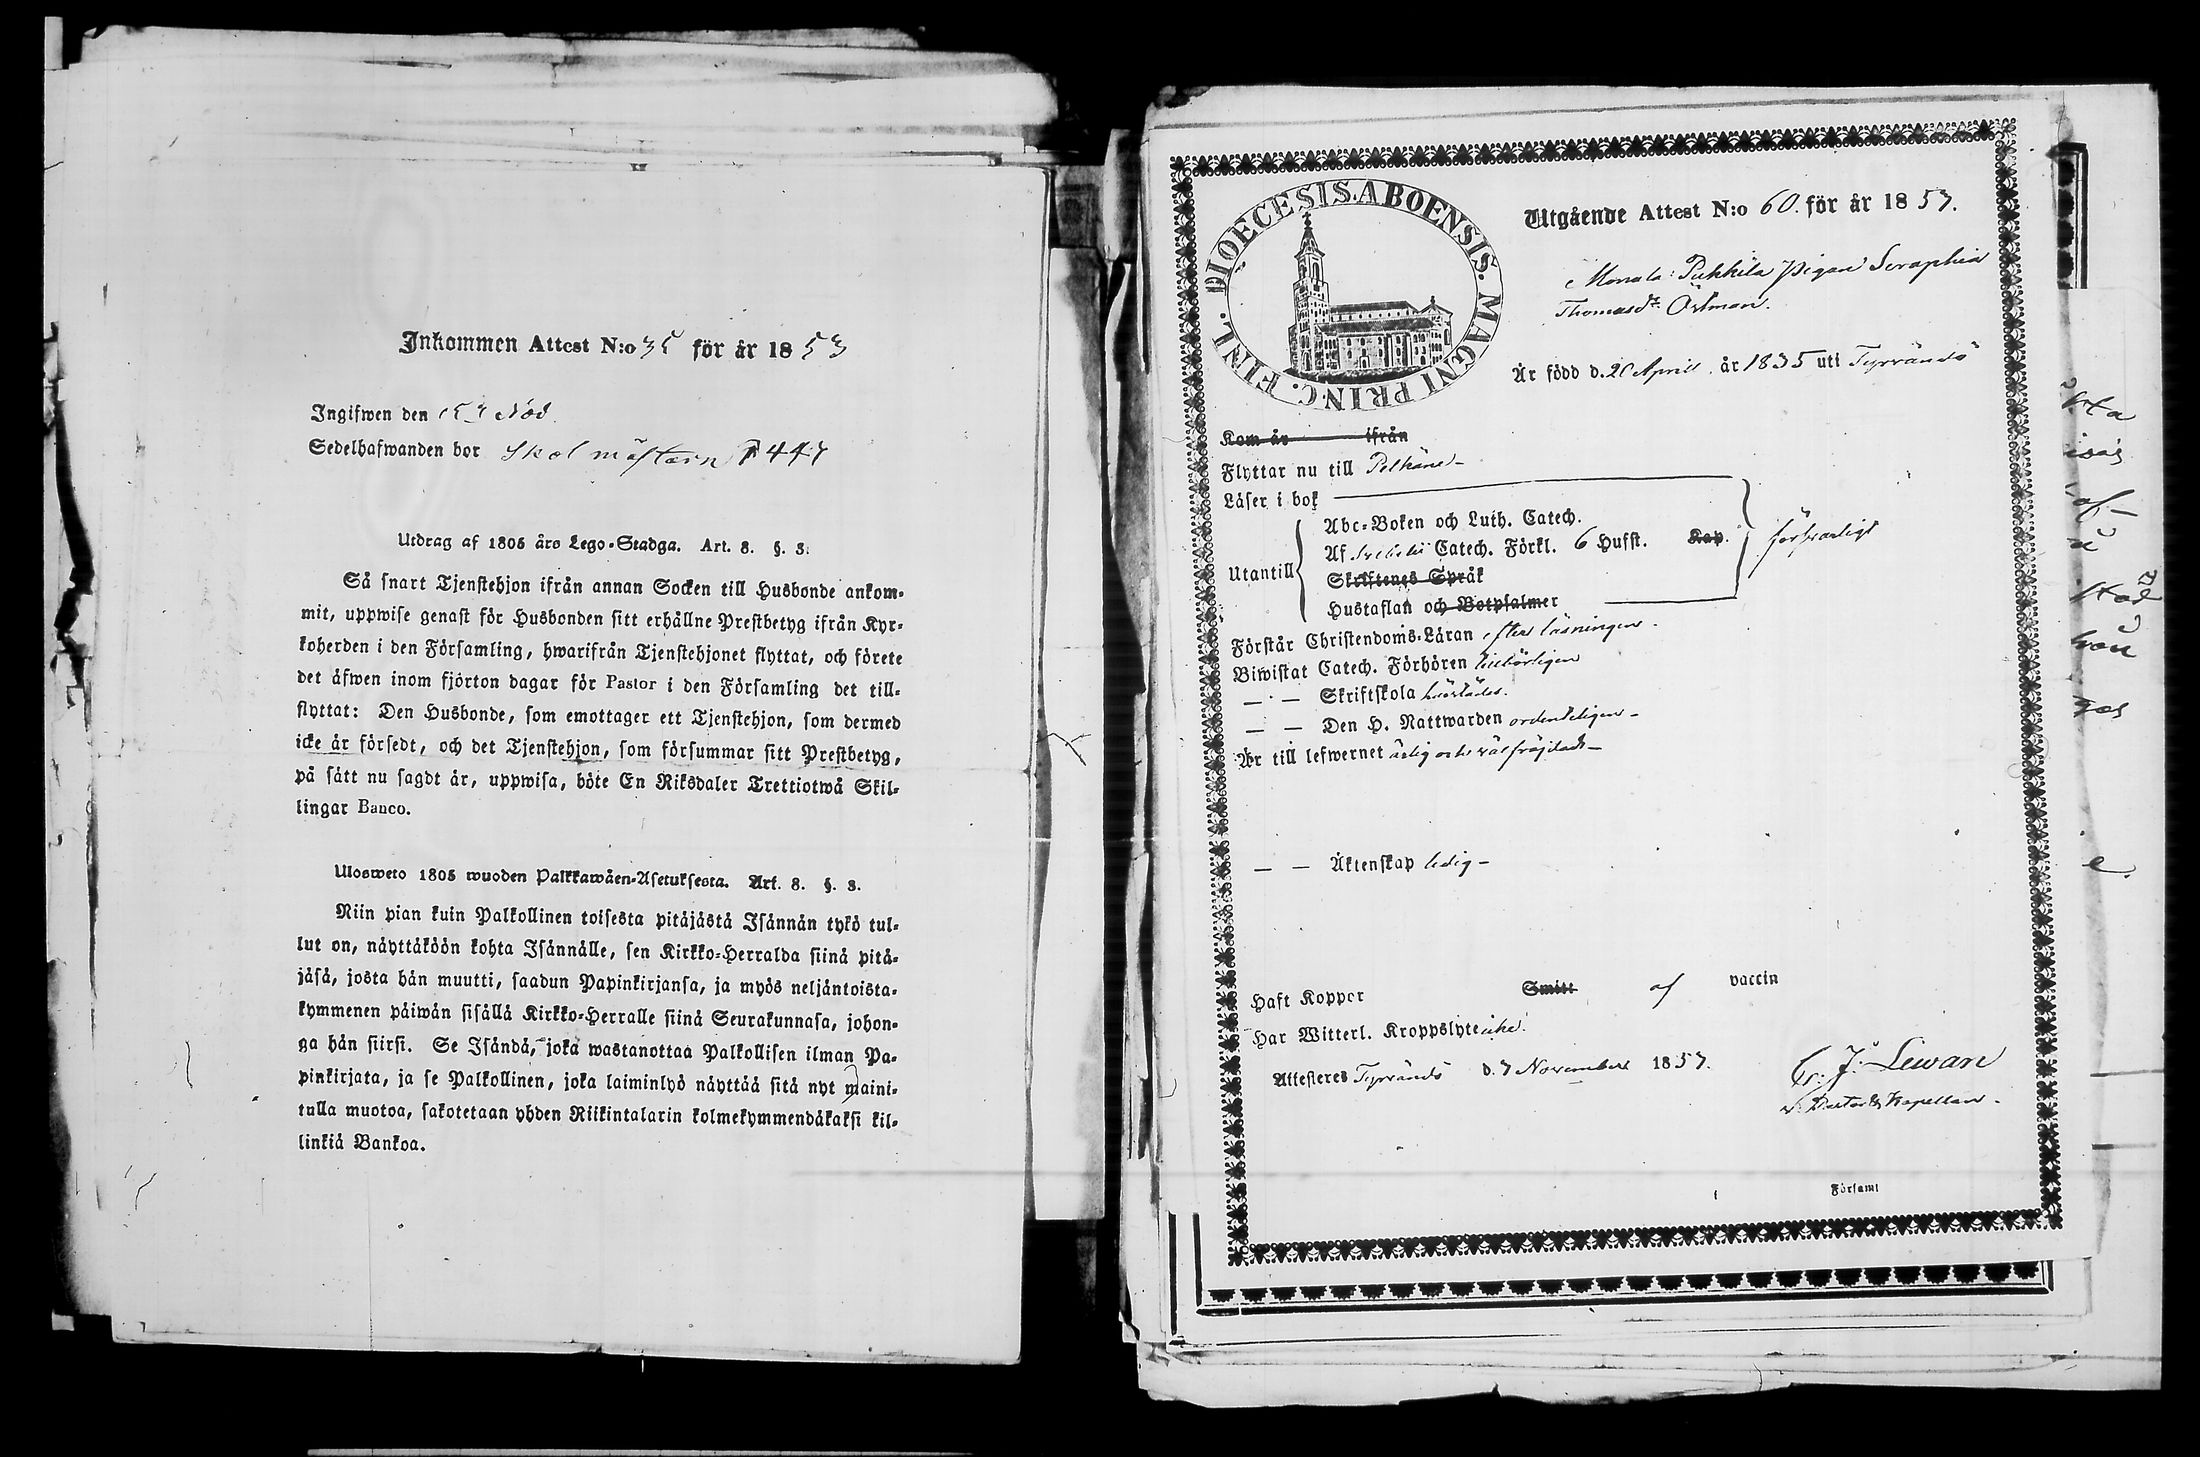 Inkommen Attest N:o 35 för år 1853
Ingifwen den
Sedelhafwanden bor Skolmästern P 447
Utdrag af 1805 års Lego-Stadga. Art. 8. §. 3.
Så snart Tjenstehjon ifrån annan Socken till Husbonde ankom-
mit, uppwise genast för Husbonden sitt erhållne Prestbetyg ifrån Kyr-
koherden i den Församling, hwarifrån Tjenstehjonet flyttat, och förete
det äfwen inom fjorton dagar för Pastor i den Församling det till-
flyttat: Den Husbonde, som emottager ett Tjenstehjon, som dermed
icke är försedt, och det Tjenstehjon, som försummar sitt Prestbetyg,
på sätt nu sagdt är, uppwisa, böte En Riksdaler Trettiotwå Skil-
lingar Banco.
Ulosweto 1805 wuoden Palkkawäen-Asetuksesta. Art. 8. §. 3.
Niin pian kuin Palkollinen toisesta pitäjästä Isännän tykö tul-
lut on, näyttäköön kohta Isännälle, sen Kirkko-Herralda siinä pitä-
jäsä, josta hän muutti, saadun Papinkirjansa, ja myös neljäntoista-
kymmenen päiwän sisällä Kirkko-Herralle siinä Seurakunnasa, johon-
ga hän siirsi. Se Isändä, joka wastanottaa Palkollisen ilman Pa-
pinkirjata, ja se Palkollinen, joka laiminlyö näyttää sitä nyt maini-
tulla muotoa, sakotetaan yhden Riikintalarin kolmekymmendäkaksi kil-
linkiä Bankoa.
DIOECESIS. ABOENSIS. MAGNI PRINC. FINL.
Utgående Attest N:o 60. för år 1853.
Monala: Pukkila Pigan Seraphia
Thomasdr Östman.
Är född d. 20 April år 1835 uti Tyrvändö
Kom år ifrån
Flyttar nu till Pelkäne
Läser i bok
Abc-Boken och Luth. Catech.
Af Svebelii Catech. Förkl. 6 Hufst. Kap.
Utantill
försvarligt
Skriftenes Språk
Hustaflan och Botpsalmer
Förstår Christendoms-Läran efter läsningen
Biwistat Catech. Förhören tillbörligen
— — Skriftskola härstädes.
— — Den H. Nattwarden ordenteligen
Är till lefwernet ärlig och välfräjdad
— — Äktenskap ledig
Haft Koppor Smitt af vaccin
Har Witterl. Kroppslyte icke.
Attesteres Tyrvändö d. 7 November 1853.
C. J. Lewan
v. Pastor & Kapellan
Församl